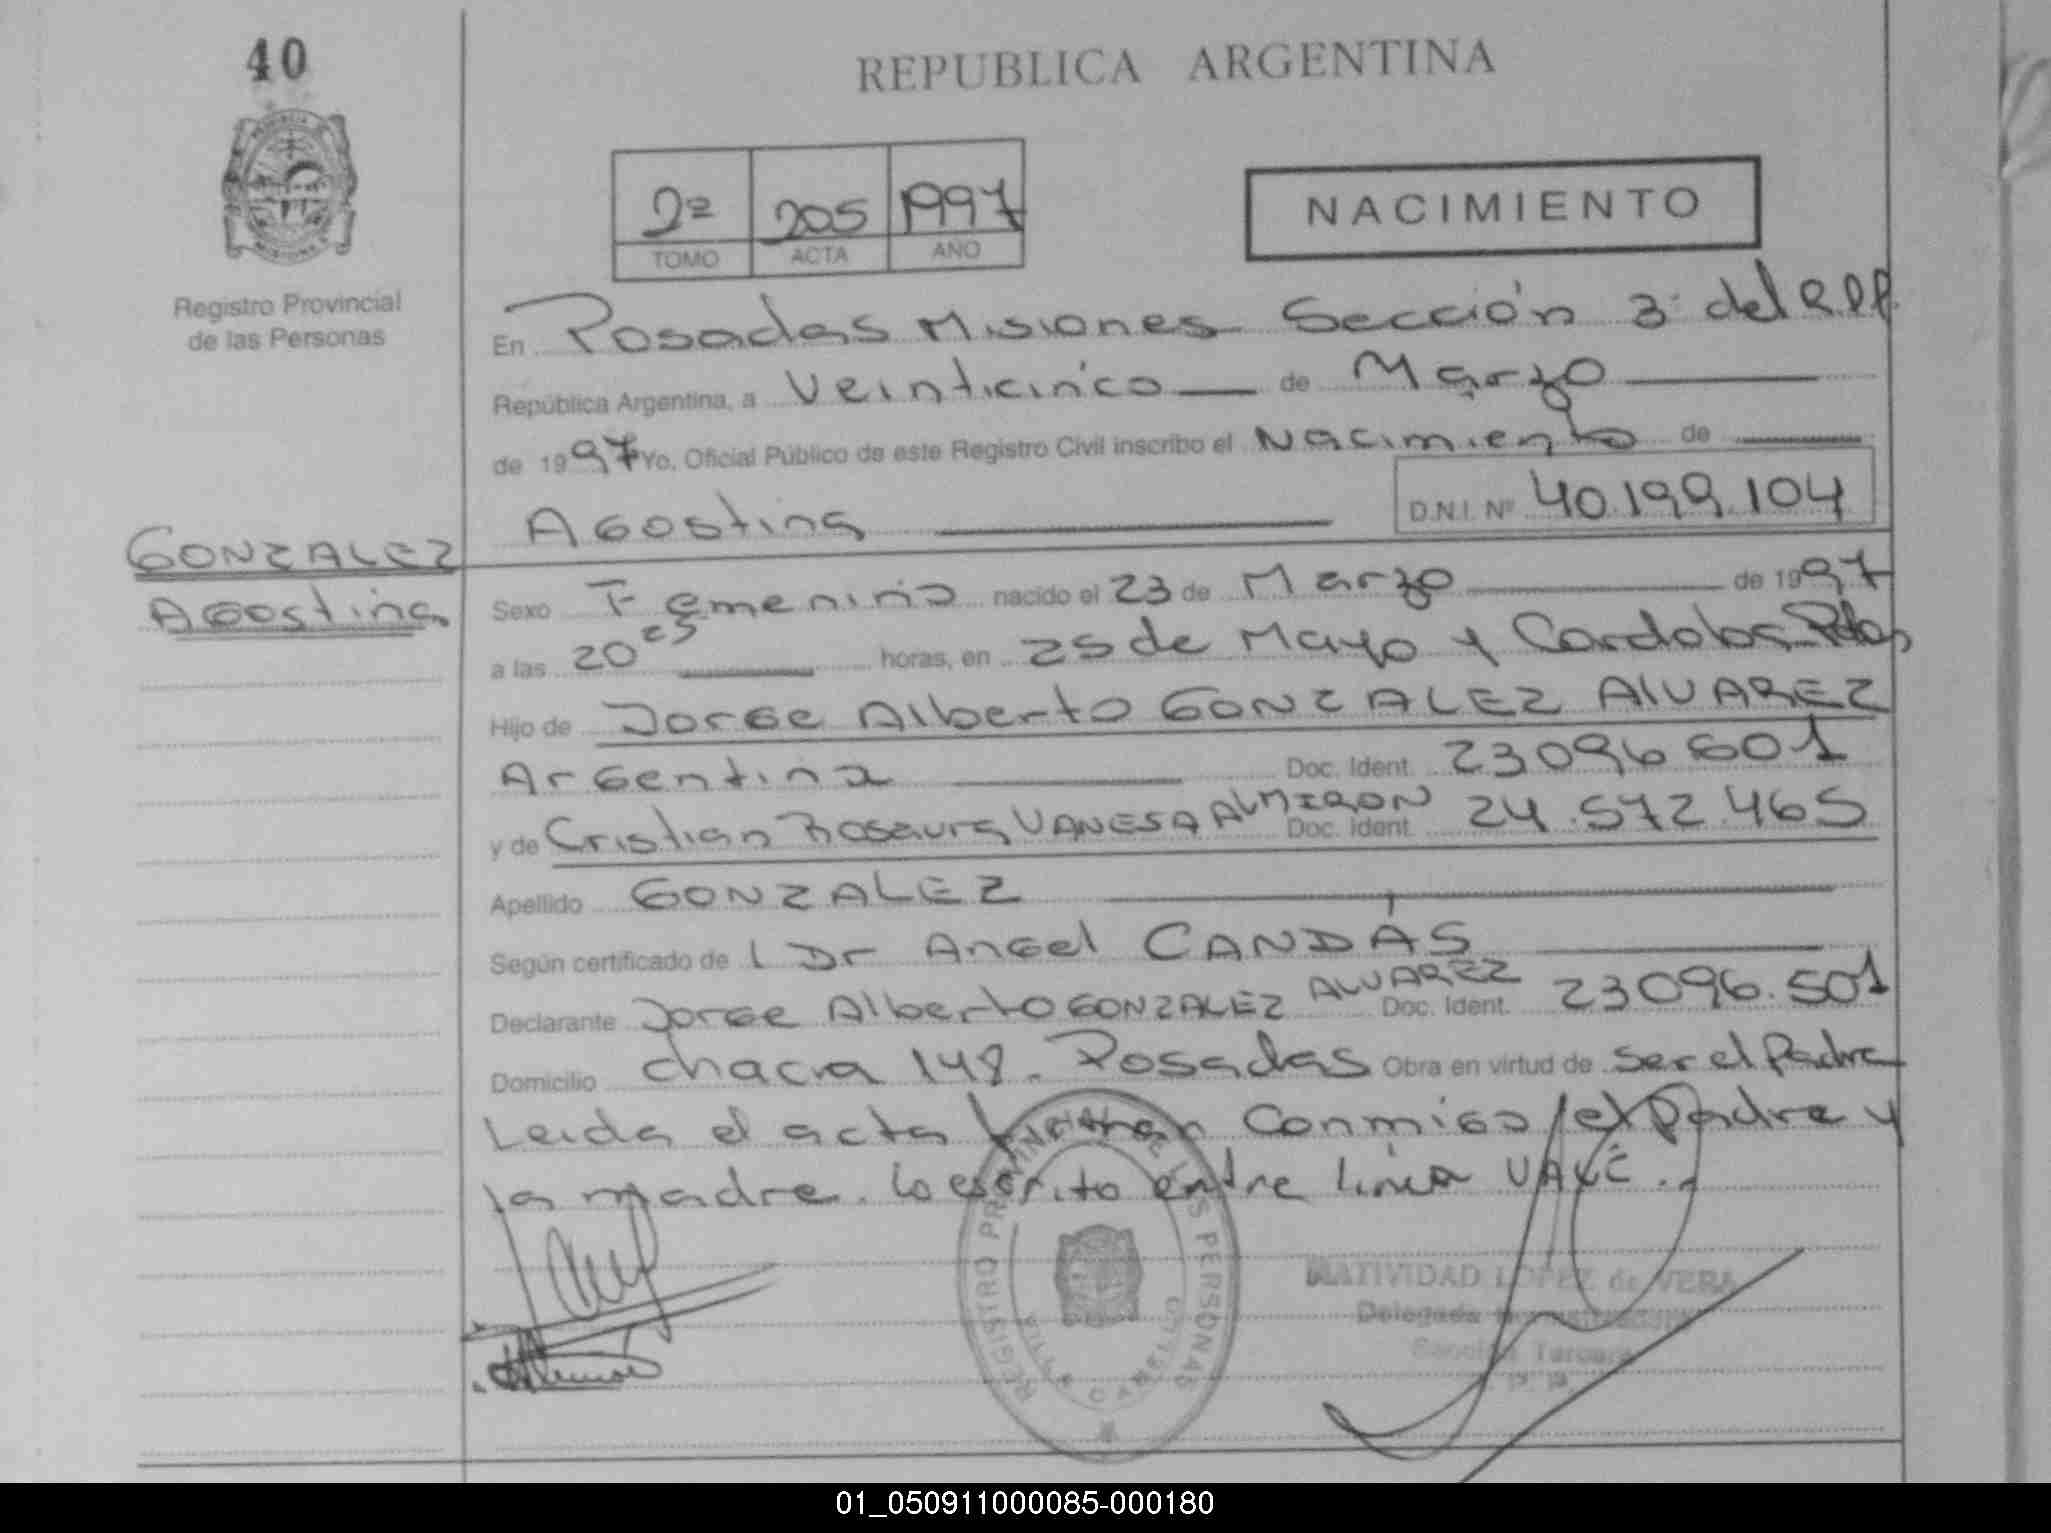 40
REPUBLICA ARGENTINA
2º 205 1997
TOMO ACTA AÑO
NACIMIENTO
Registro Provincial
de las Personas
En Posadas Misiones Sección 3ª del R.P.P.
República Argentina, a Veinticinco de Marzo
de 1997 Yo, Oficial Público de este Registro Civil inscribo el Nacimiento de
Agostina D.N.I. Nº 40.199.104
GONZALEZ
Agostina
Sexo Femenino nacido el 23 de Marzo de 1997
a las 20 25 horas, en 25 de Mayo y Cordoba Pdas
Hijo de Jorge Alberto GONZALEZ ALVAREZ
Argentina Doc. Ident. 23096601
y de Cristian Rosaura VANESA ALMIRON Doc. Ident. 24.572.465
Apellido GONZALEZ
Según certificado de Dr Angel CANDÁS
Declarante Jorge Alberto GONZALEZ ALVAREZ Doc. Ident. 23096.501
Domicilio chacra 148. Posadas Obra en virtud de ser el Padre
Leida el acta firman Conmigo el Padre y
la madre. lo escrito entre linea VALE.
REGISTRO PROVINCIAL DE LAS PERSONAS
VILLA CABELLO
NATIVIDAD LOPEZ de VERA
Delegada
Sección Tercera
01_050911000085-000180